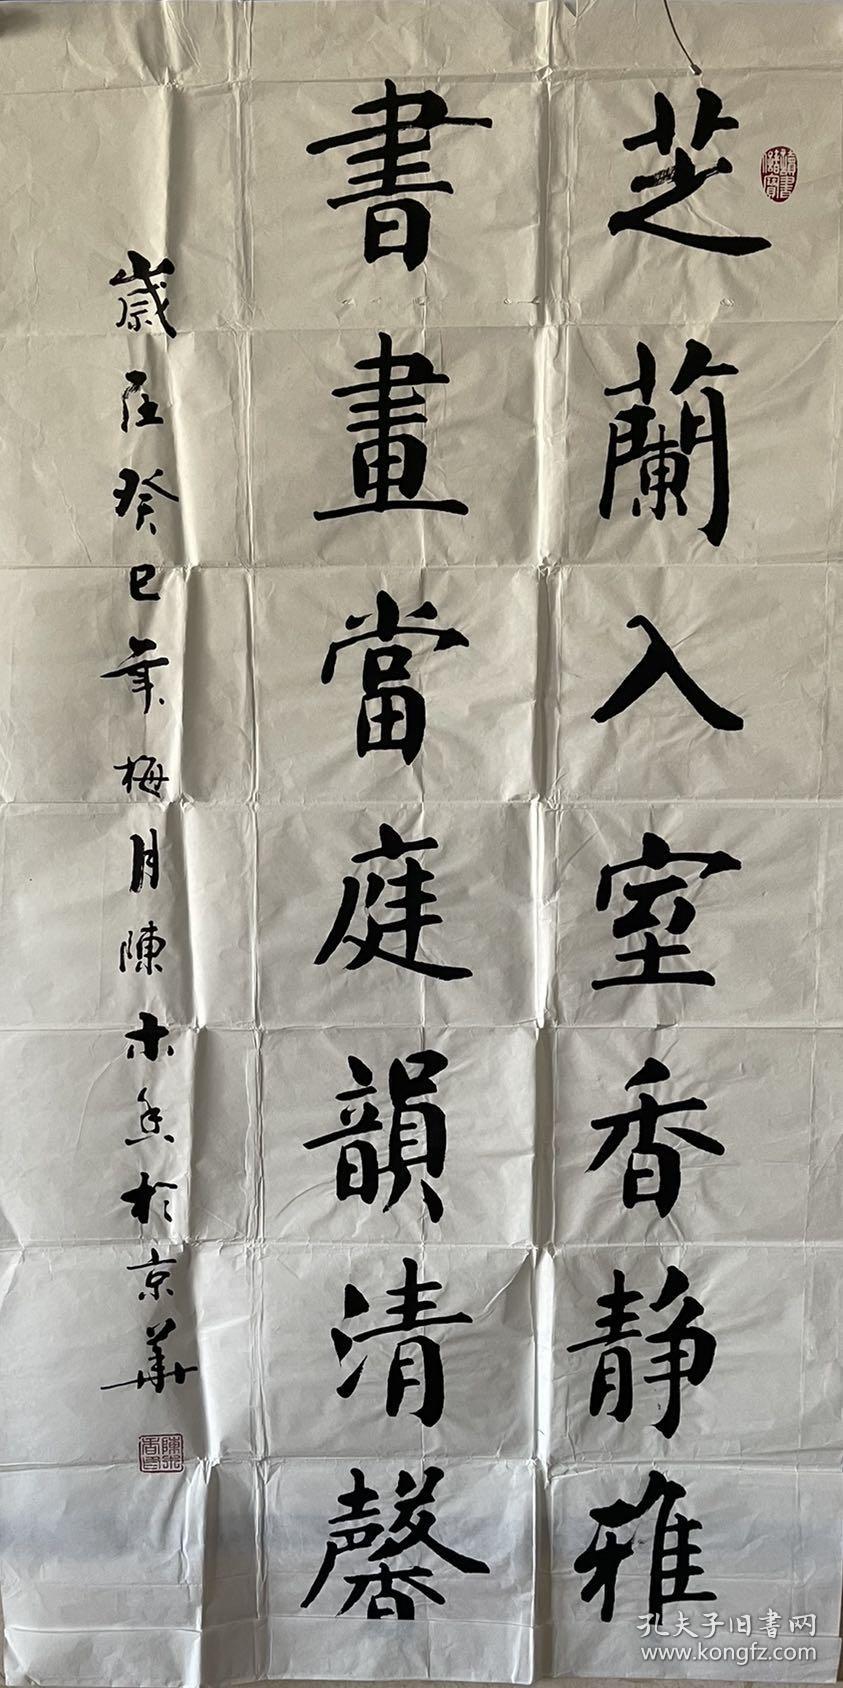 芝蘭入室香静雅
書畫當庭韻清馨
歲在癸巳年梅月陳木香於京華
孔夫子旧书网
www.kongfz.com